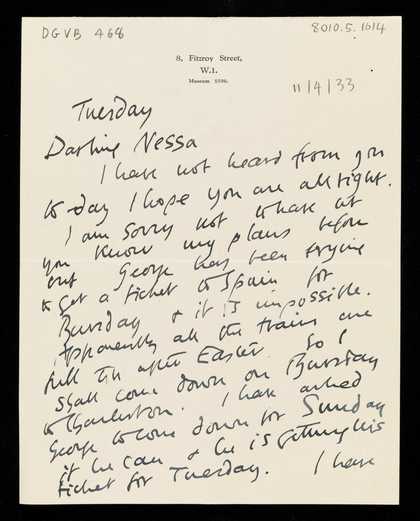 DGVB 468
8010.5.1614
8, Fitzroy Street,
W.1.
Museum
11/4/33
Tuesday
Darling Nessa
I have not heard from you
to-day I hope you are all right.
I am sorry not to have let
you know my plans before
but George has been trying
to get a ticket to Spain for
Thursday & it is impossible.
Apparently all the trains are
full till after Easter. So I
shall come down on Thursday
to Charleston. I have asked
George to come down for Sunday
if he can & he is getting his
ticket for Tuesday. I have